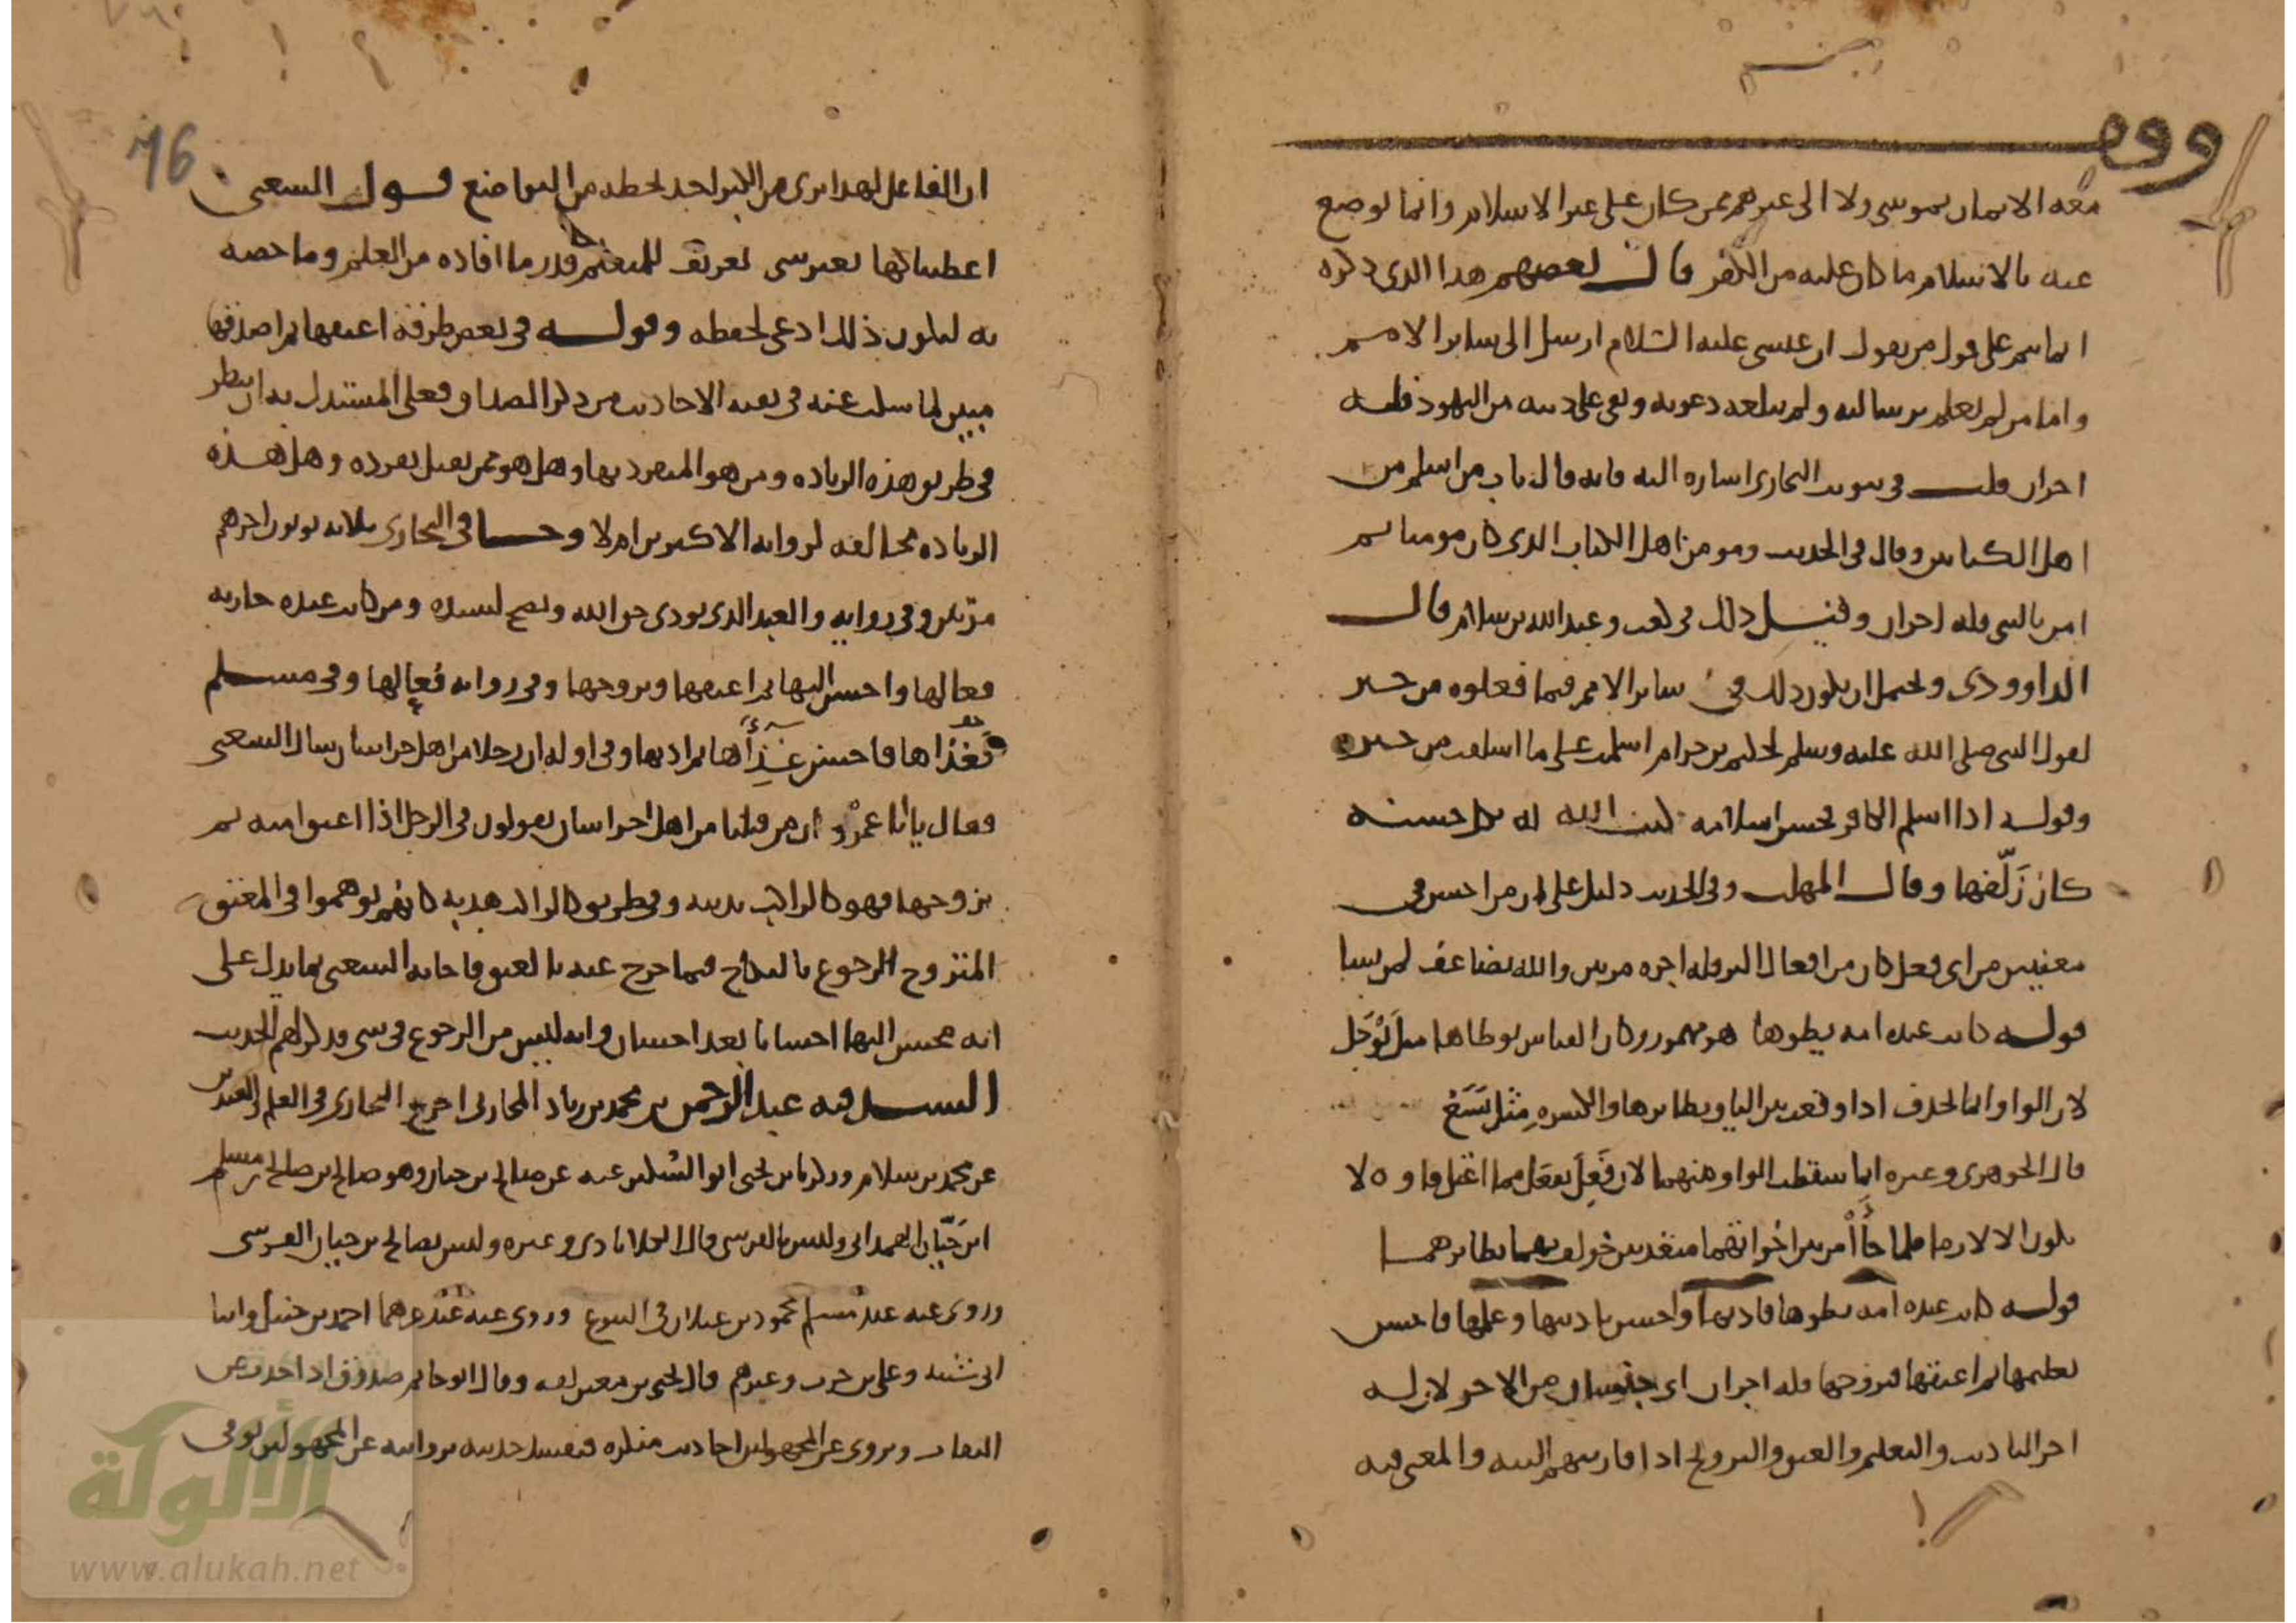 وقف
معه الايمان بموسى ولا الى غيرهم ممن كان على غير الاسلام وانما يوضع
عنه بالاسلام ما كان عليه من الكفر قال بعضهم هذا الذي ذكره
انما يتم على قول من يقول ان عيسى عليه السلام ارسل الى ساير الامم
واما من لم يعلم برسالته ولم تبلغه دعوته وبقي على دينه من اليهود فله
اجران قلت في تبويب البخاري اشاره اليه فانه قال باب من اسلم من
اهل الكتابين وقال في الحديث ومومن اهل الكتاب الذي كان مومنا ثم
امن بالنبي فله اجران وقيل ذلك في كعب وعبد الله بن سلام قال
الداوودي ويحتمل ان يكون ذلك في ساير الامم فيما فعلوه من خير
لقول النبي صلى الله عليه وسلم لحكيم بن حزام اسلمت على ما اسلفت من خير
وقوله اذا اسلم الكافر فحسن اسلامه كتب الله له كل حسنه
كان زَلّفها وقال المهلب وفي الحديث دليل على ان من احسن في
معنيين من اي فعل كان من افعال البر فله اجره مرتين والله يضاعف لمن يشا
قوله كانت عنده امه يطوها هو مهموز وكان القياس يوطاها مثل يَوْجَل
لان الواو انما تحذف اذا وقعت بين اليا والكسره مثل يَسَعُ
قال الجوهري وغيره انما سقطت الواو منهما لان فَعِلَ يفعَل مما اعتل فاوه لا
يكون الا لازما فلما جاآ من بين اخواتهما متعديين خولف بهما نظايرهما
قوله كانت عنده امه يطوها فادبها واحسن تاديبها وعلمها فاحسن
تعليمها ثم اعتقها فتزوجها فله اجران اي من الاجر لان له
اجر التاديب والتعليم والعتق والتزويج اذا قارنتهم النيه والمعنى فيه
76
ان الفاعل لهذا بري من الكبر اخذ بحظه من التواضع قول الشعبي
اعطيناكها بغير شي تعريف للمتعلم قدر ما افاده من العلم وما خصه
به ليكون ذلك ادعى لحفظه وقوله في بعض طرقه اعتقها ثم اصدقها
مبين لما سكت عنه في بقيه الاحاديث من ذكر الصداق فعلى المستدل به ان ينظر
في طريق هذه الزياده ومن هو المنفرد بها وهل هو ممن يقبل تفرده وهل هذه
الزياده مخالفه لروايه الاكثرين ام لا وجا في البخاري ثلاثه يوتون اجرهم
مرتين وفي روايه والعبد الذي يودي حق الله وينصح لسيده ومن كانت عنده جاريه
فعالها واحسن اليها ثم اعتقها وتزوجها وفي روايه فعالها وفي مسلم
فغذّاها فاحسن غِذاَها ثم ادبها وفي اوله ان رجلا من اهل خراسان سال الشعبي
فقال يابا عمرو ان من قبلنا من اهل خراسان يقولون في الرجل اذا اعتق امته ثم
تزوجها فهو كالراكب بدنته وفي طريق كالراكب هديه كانهم توهموا في المعتق
المتزوج الرجوع بالنكاح فيما خرج عنه بالعتق فاجابه الشعبي بما يدل على
انه محسن اليها احسانا بعد احسان وانه ليس من الرجوع في شي فذكر لهم الحديث
السند فيه عبد الرحمن بن محمد بن زياد المحاربي اخرج البخاري في العلم والعيدين
عن محمد بن سلام وزكريا بن يحيى ابو السكين عنه عن صالح بن حيان وهو صالح بن صالح بن مسلم
ابن حَيّان الهمداني وليس بالقرشي قال الكلاباذي وغيره وليس بصالح بن حيان القرشي
وروى عنه عند مسلم محمود بن غيلان في البيوع وروى عنه عند غيرهما احمد بن حنبل وابنا
ابي شيبه وعلي بن حرب وغيرهم قال يحيى بن معين ثقه وقال ابو حاتم صدوق اذا حدث عن
الثقات ويروي عن المجهولين احاديث منكره فيفسد حديثه بروايته عن المجهولين توفي
الألوكة
www.alukah.net